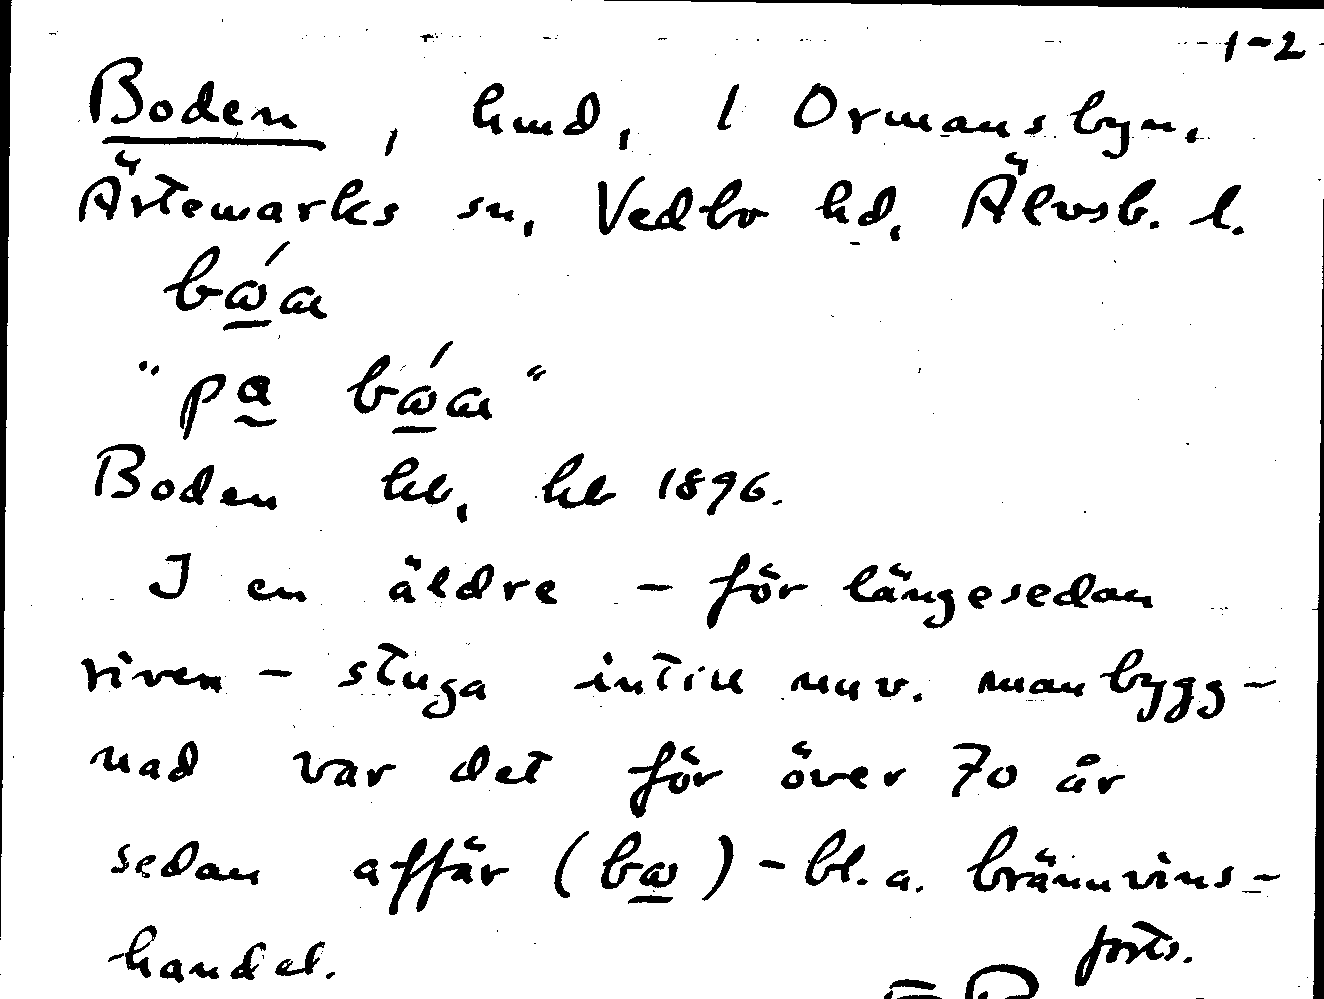 1-2
Boden, hmd, i Ormansbyn,
Ärtemarks sn, Vedbo hd, Älvsb. l.
"på
Boden hb, kb 1896.
I en äldre - för längesedan
riven - stuga intill nuv. manbygg-
nad var det för över 70 år
sedan affär ( ) - bl.a. brännvins-
handel. forts.